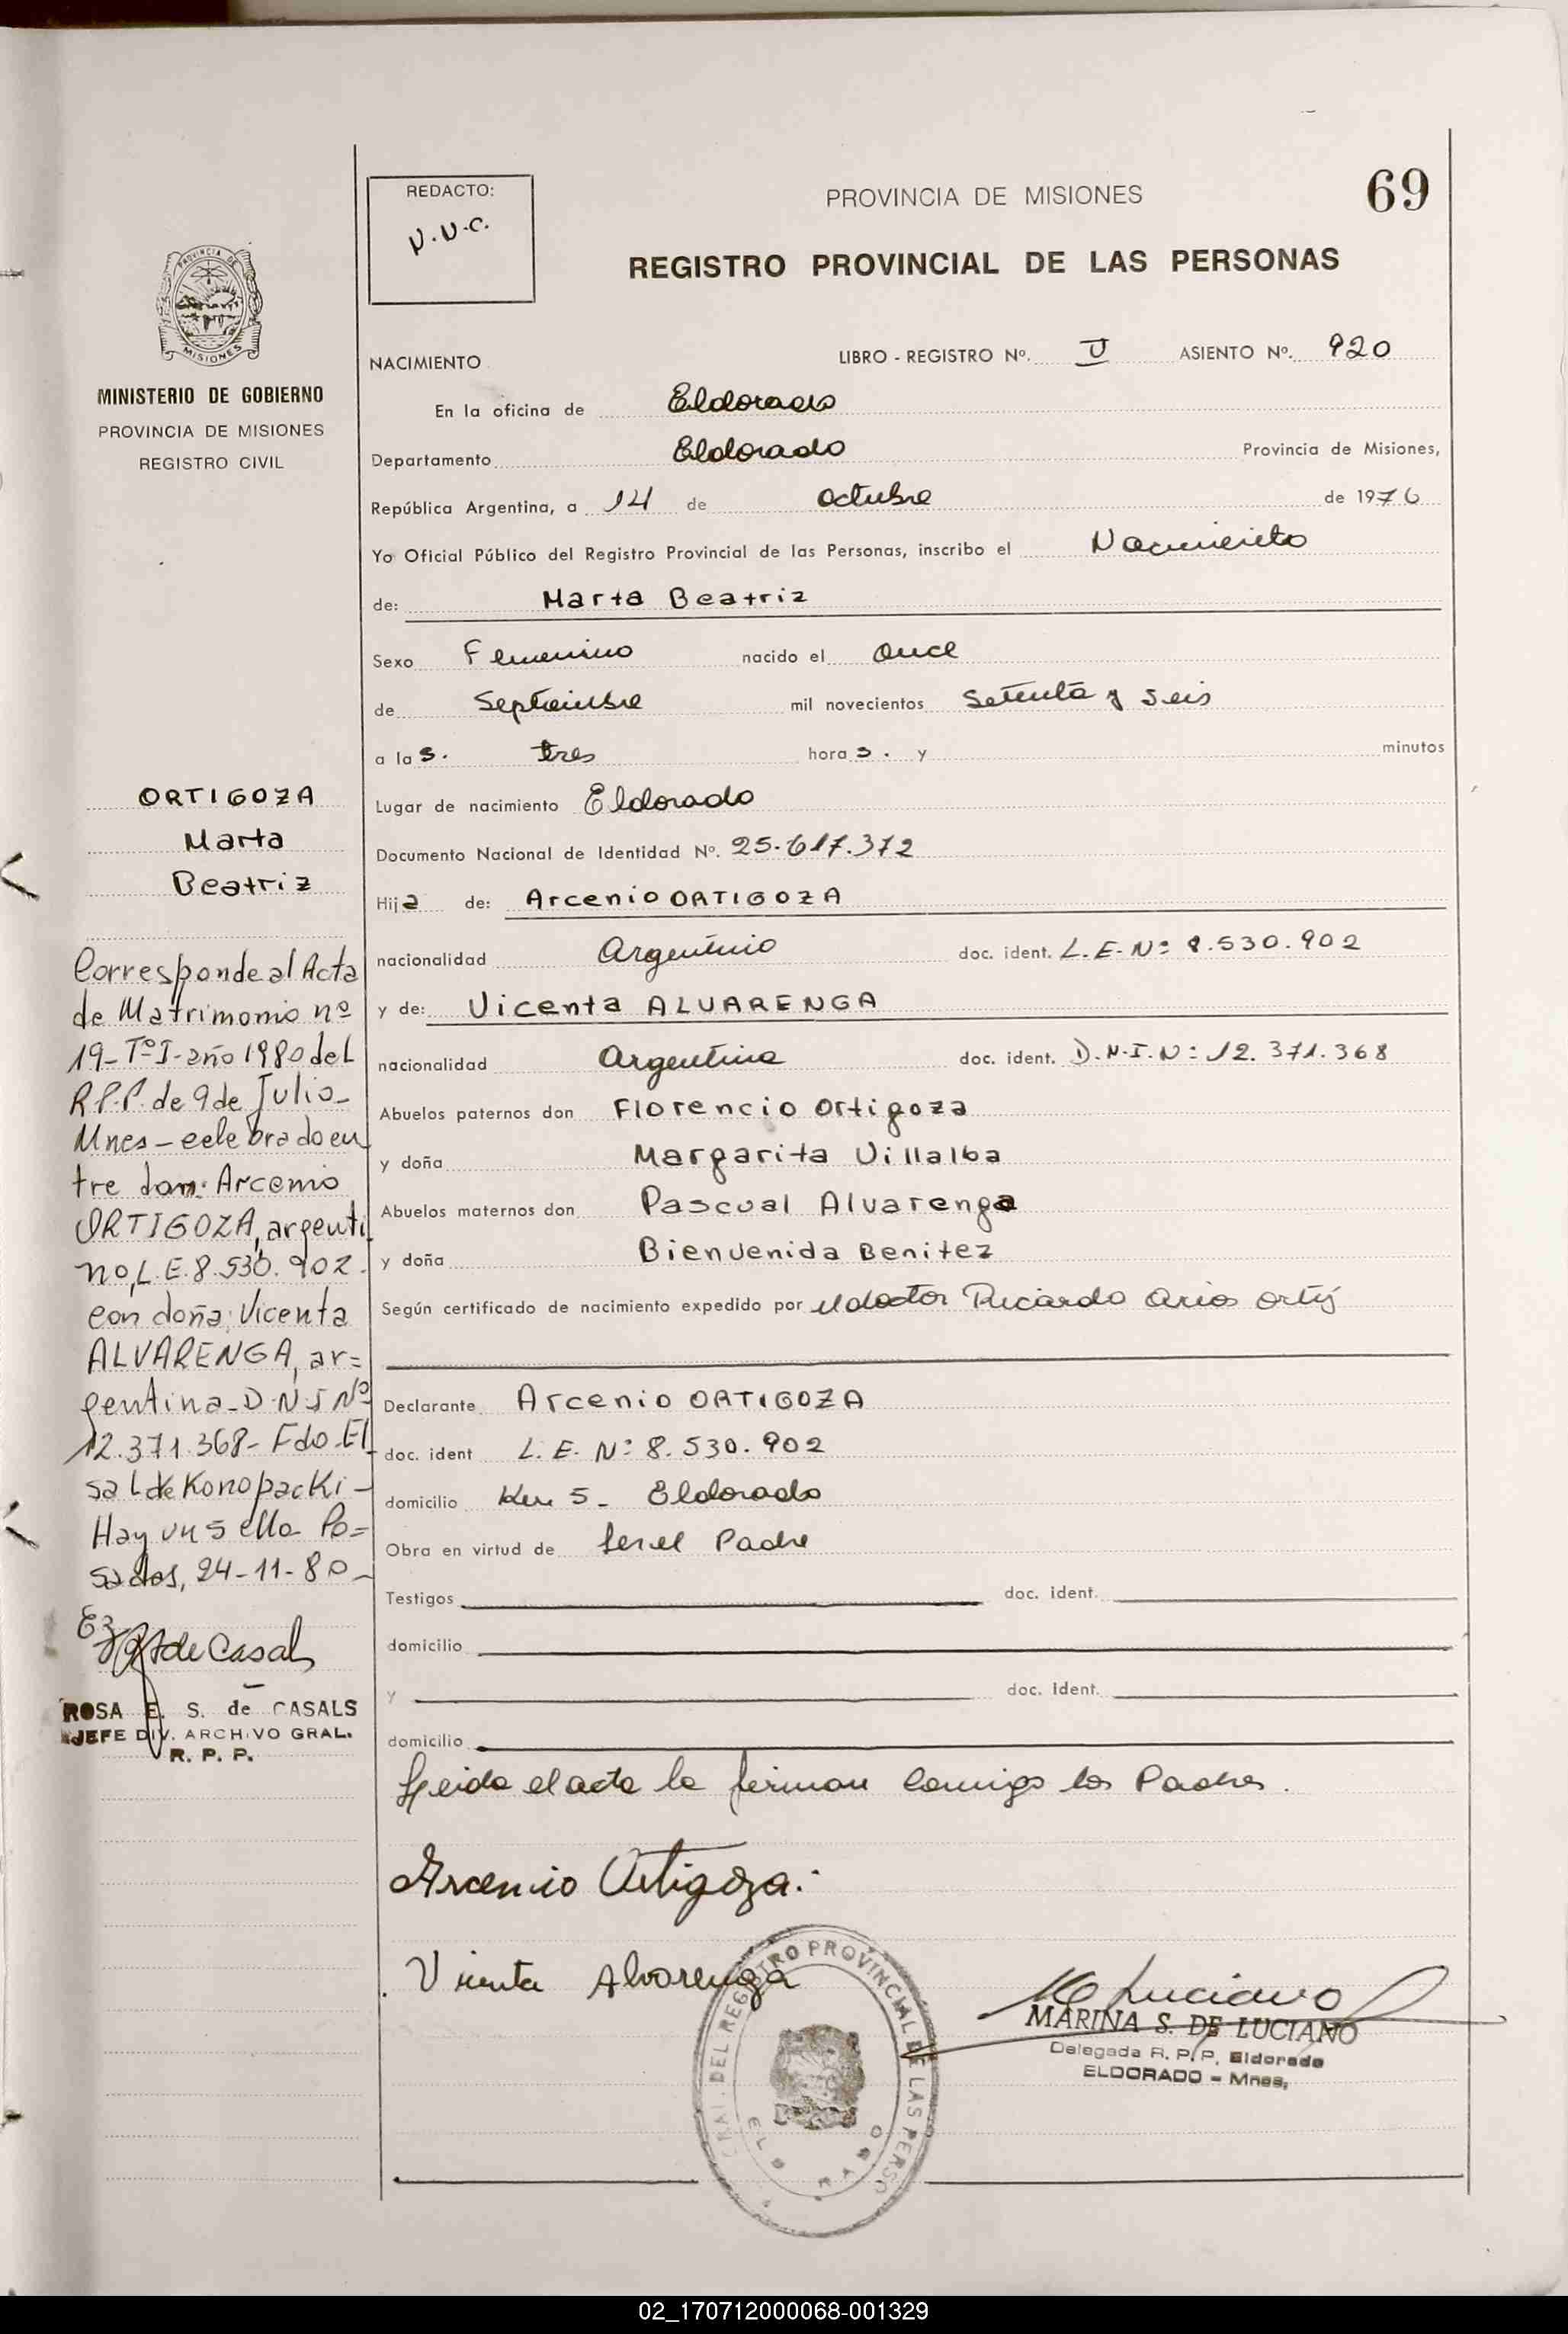 69
REDACTO:
PROVINCIA DE MISIONES
REGISTRO PROVINCIAL DE LAS PERSONAS
PROVINCIA DE
MISIONES
MINISTERIO DE GOBIERNO
PROVINCIA DE MISIONES
REGISTRO CIVIL
NACIMIENTO LIBRO - REGISTRO Nº. ASIENTO Nº. 920
En la oficina de Eldorado
Departamento Eldorado Provincia de Misiones,
República Argentina, a 14 de octubre de 1976
Yo Oficial Público del Registro Provincial de las Personas, inscribo el Nacimiento
de: Marta Beatriz
Sexo Femenino nacido el once
de Septiembre mil novecientos setenta y seis
a las. tres horas. y minutos
Lugar de nacimiento Eldorado
Documento Nacional de Identidad Nº. 25.617.372
Hija de: Arcenio ORTIGOZA
nacionalidad Argentino doc. ident. L.E. Nº 8.530.902
y de: Vicenta ALVARENGA
nacionalidad Argentina doc. ident. D.N.I. Nº 12.371.368
Abuelos paternos don Florencio Ortigoza
y doña Margarita Villalba
Abuelos maternos don Pascual Alvarenga
y doña Bienvenida Benitez
Según certificado de nacimiento expedido por el doctor Ricardo Arios Ortiz
Declarante Arcenio ORTIGOZA
doc. ident L.E. Nº 8.530.902
domicilio Km 5 - Eldorado
Obra en virtud de ser el Padre
Testigos doc. ident.
domicilio
y doc. ident.
domicilio
Leida el acta la firman conmigo los Padres.
Arcenio Ortigoza.
Vicenta Alvarenga
ORTIGOZA
Marta
Beatriz
Corresponde al Acta
de Matrimonio nº
19-Tº I-año 1980 del
R.P.P. de 9 de Julio-
Mnes-celebrado en
tre don: Arcenio
ORTIGOZA, argenti
no, L.E. 8.530.902.
con doña: Vicenta
ALVARENGA, ar=
gentina-D.N.I Nº
12.371.368-Fdo-El
sa L de Konopacki-
Hay un sello Po=
sadas, 24-11-80-
de Casals
ROSA E. S. de CASALS
JEFE DIV. ARCHIVO GRAL.
R. P. P.
GRAL. DEL REGISTRO PROVINCIAL DE LAS PERSO
Luciano
MARINA S. DE LUCIANO
Delegada R. P. P. Eldorado
ELDORADO - Mnes,
02_170712000068-001329